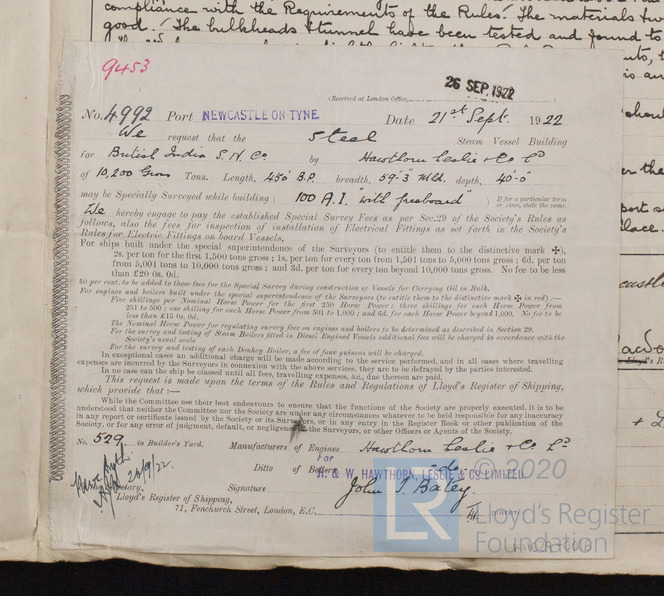 compliance with the Requirements of the Rules. The materials
good. The bulkheads & tunnel have been tested and found to
9453
(Received at London Office,
26 SEP. 1922
No. 4992 Port NEWCASTLE-ON-TYNE. Date 21st Sept. 1922
We request that the Steel Steam Vessel Building
for British India S. N. Co by Hawthorn Leslie & Co Ld
of 10,200 Gross Tons. Length, 450' B.P. breadth, 59'3" Mld. depth, 40'-0"
may be Specially Surveyed while building ( 100 A.1. "with freeboard" ) If for a particular term
or class, state the same.
We hereby engage to pay the established Special Survey Fees as per Sec. 29 of the Society's Rules as
follows, also the fees for inspection of installation of Electrical Fittings as set forth in the Society's
Rules for Electric Fittings on board Vessels.
For ships built under the special superintendence of the Surveyors (to entitle them to the distinctive mark ✠),
2s. per ton for the first 1,500 tons gross; 1s. per ton for every ton from 1,501 tons to 5,000 tons gross; 6d. per ton
from 5,001 tons to 10,000 tons gross; and 3d. per ton for every ton beyond 10,000 tons gross. No fee to be less
than £20 0s. 0d.
50 per cent. to be added to these fees for the Special Survey during construction of Vessels for Carrying Oil in Bulk.
For engines and boilers built under the special superintendence of the Surveyors (to entitle them to the distinctive mark ✠ in red) :—
Five shillings per Nominal Horse Power for the first 250 Horse Power; three shillings for each Horse Power from
251 to 500; one shilling for each Horse Power from 501 to 1,000; and 6d. for each Horse Power beyond 1,000. No fee to be
less than £15 0s. 0d.
The Nominal Horse Power for regulating survey fees on engines and boilers to be determined as described in Section 29.
For the survey and testing of Steam Boilers fitted in Diesel Engined Vessels additional fees will be charged in accordance with the
Society's usual scale.
For the survey and testing of each Donkey Boiler, a fee of four guineas will be charged.
In exceptional cases an additional charge will be made according to the service performed, and in all cases where travelling
expenses are incurred by the Surveyors in connection with the above services, they are to be defrayed by the parties interested.
In no case can the ship be classed until all fees, travelling expenses, &c., due thereon are paid.
This request is made upon the terms of the Rules and Regulations of Lloyd's Register of Shipping,
which provide that :—
While the Committee use their best endeavours to ensure that the functions of the Society are properly executed, it is to be
understood that neither the Committee nor the Society are under any circumstances whatever to be held responsible for any inaccuracy
in any report or certificate issued by the Society or its Surveyors, or in any entry in the Register Book or other publication of the
Society, or for any error of judgment, default, or negligence of the Surveyors, or other Officers or Agents of the Society.
No. 529 in Builder's Yard. Manufacturers of Engines Hawthorn Leslie & Co Ld
Ditto of Boilers -do-
For
R. & W. HAWTHORN, LESLIE & CO. LIMITED.
26/9/22.
Secretary, Signature John T. Batey.
Lloyd's Register of Shipping,
71, Fenchurch Street, London, E.C.
© 2020
LR
Lloyd's Register
Foundation